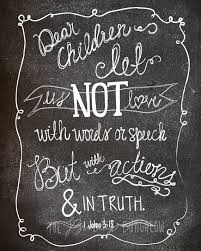 Dear
Children
let
us NOT love
with words or speech
But with actions
& IN TRUTH.
1 John 3:18